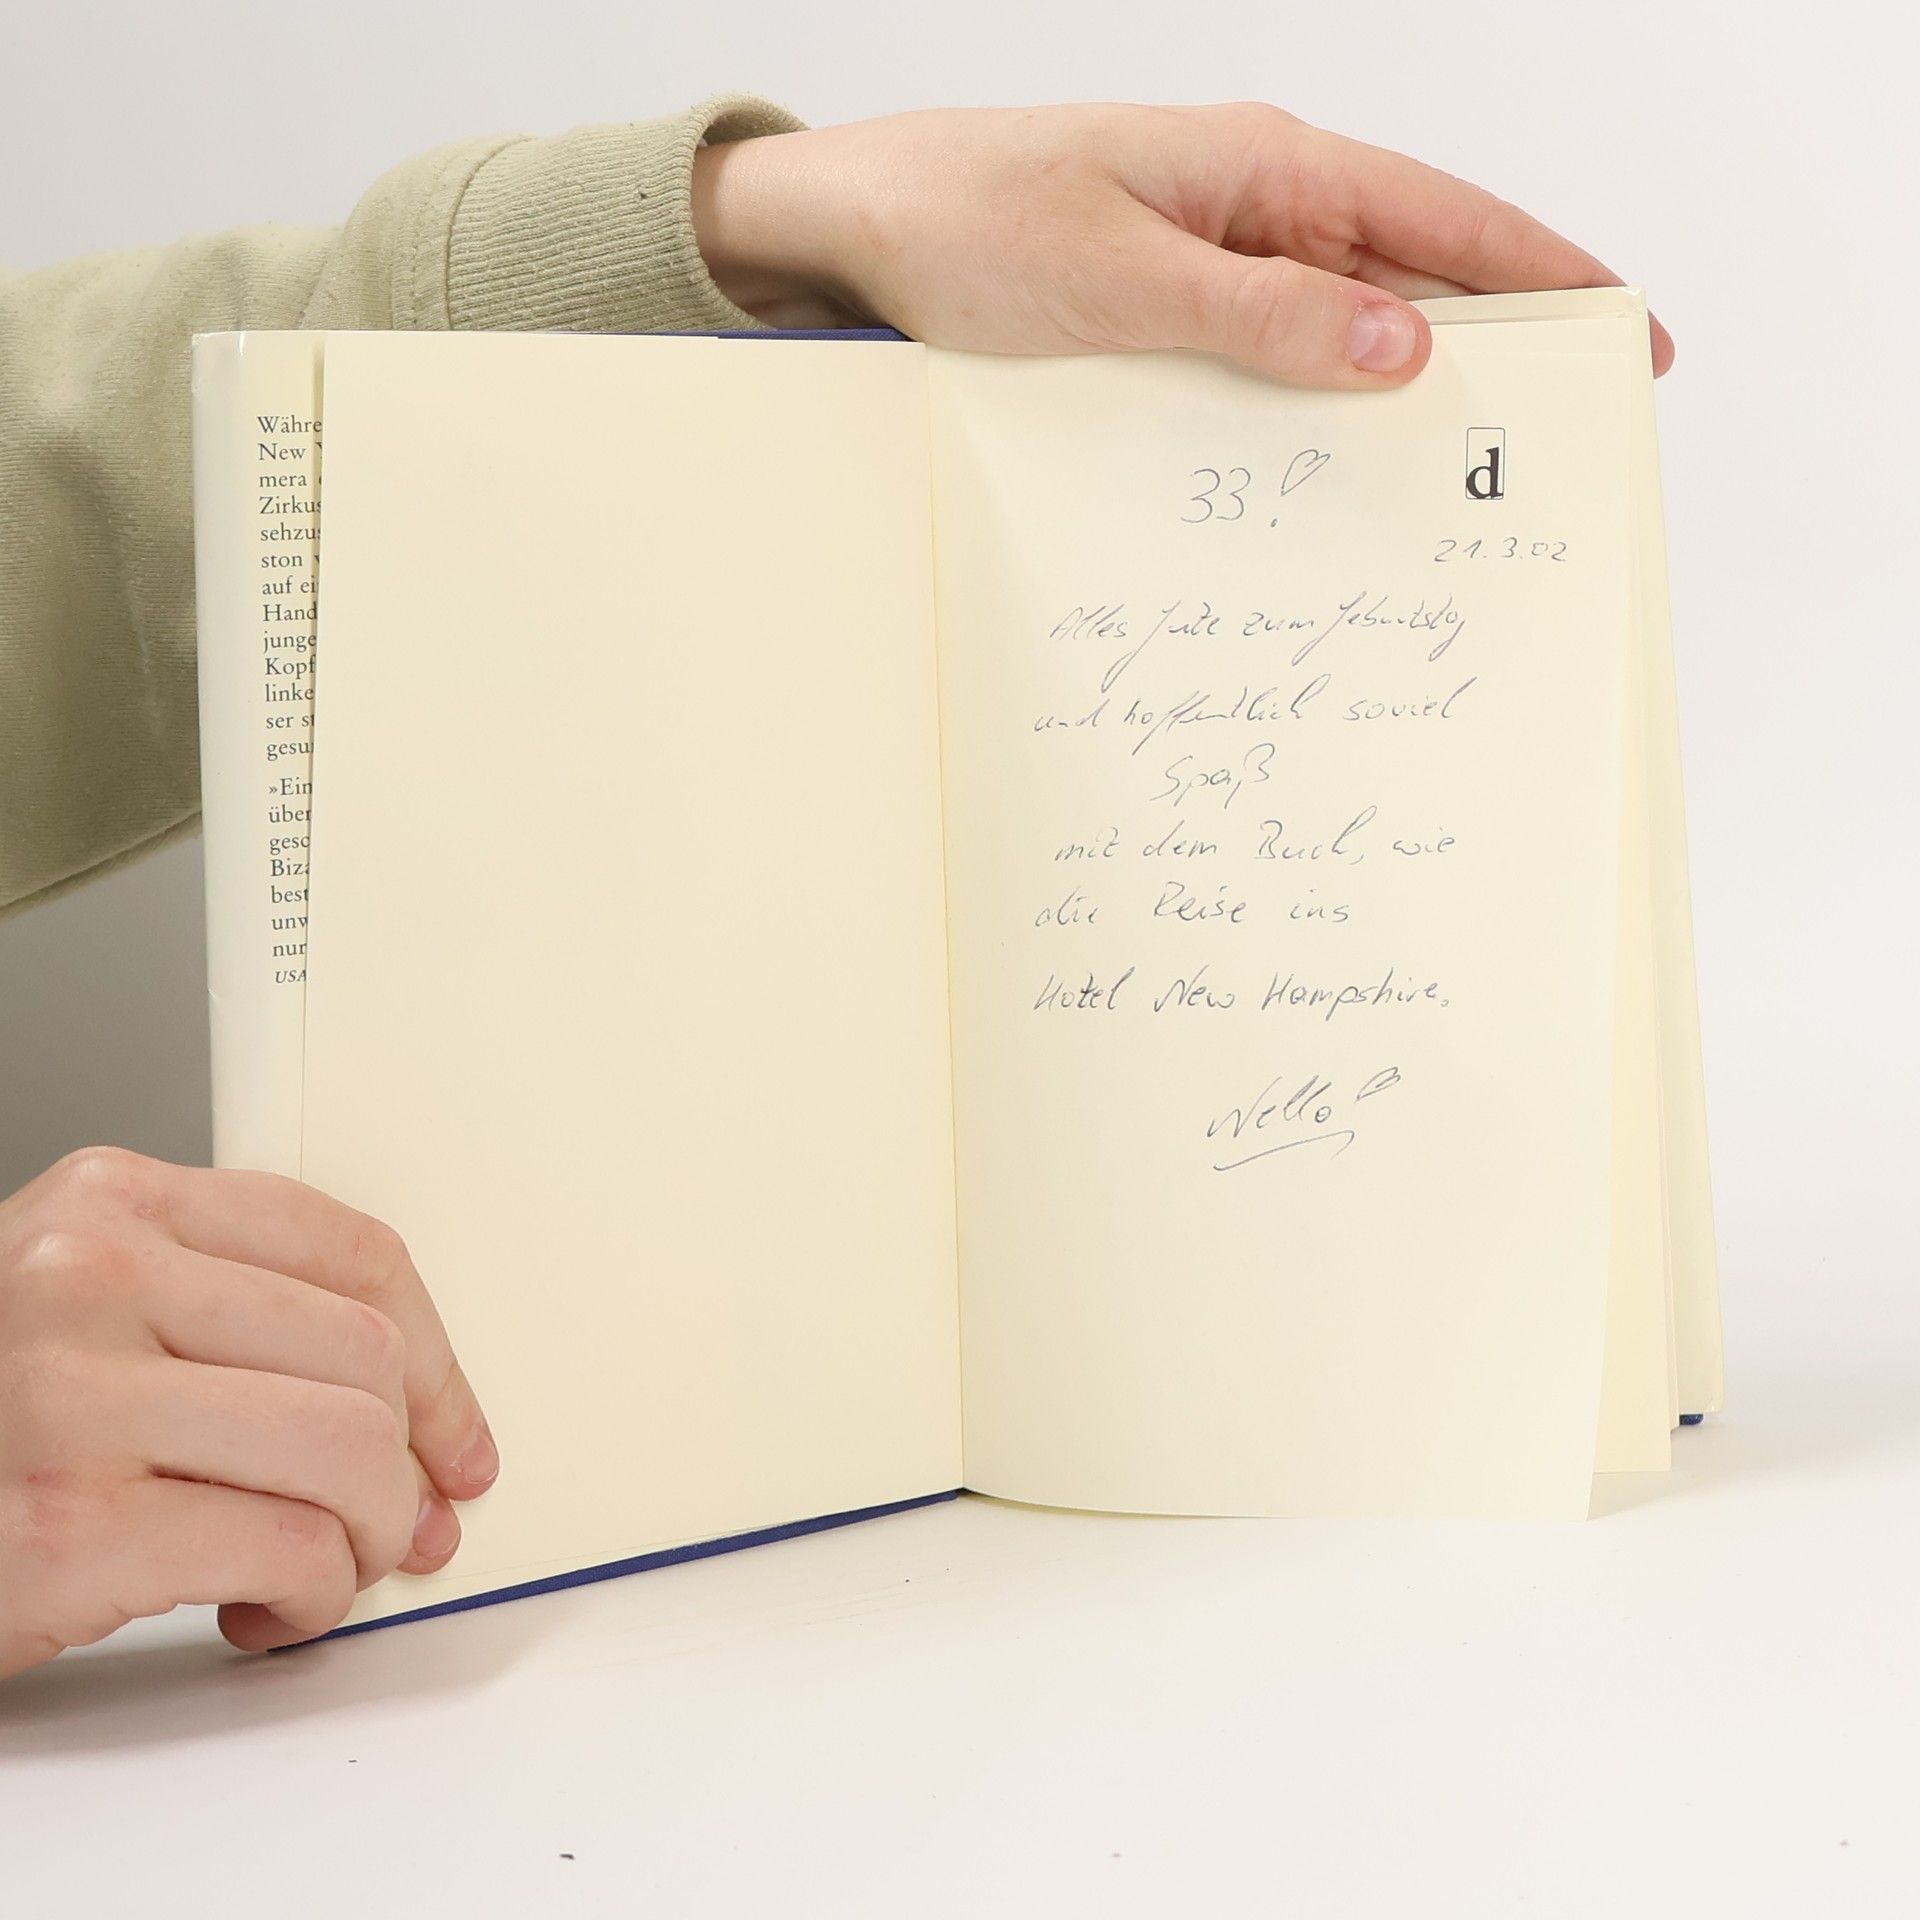 Währe
New
mera
Zirkus
sehzu
ston
auf ei
Hand
junge
Kopf
linke
ser st
gesu
»Ein
über
gesc
Biza
best
unw
nur
USA
33!
d
21.3.02
Alles Gute zum Geburtstag
und hoffentlich soviel
Spaß
mit dem Buch, wie
die Reise ins
Hotel New Hampshire.
Nello